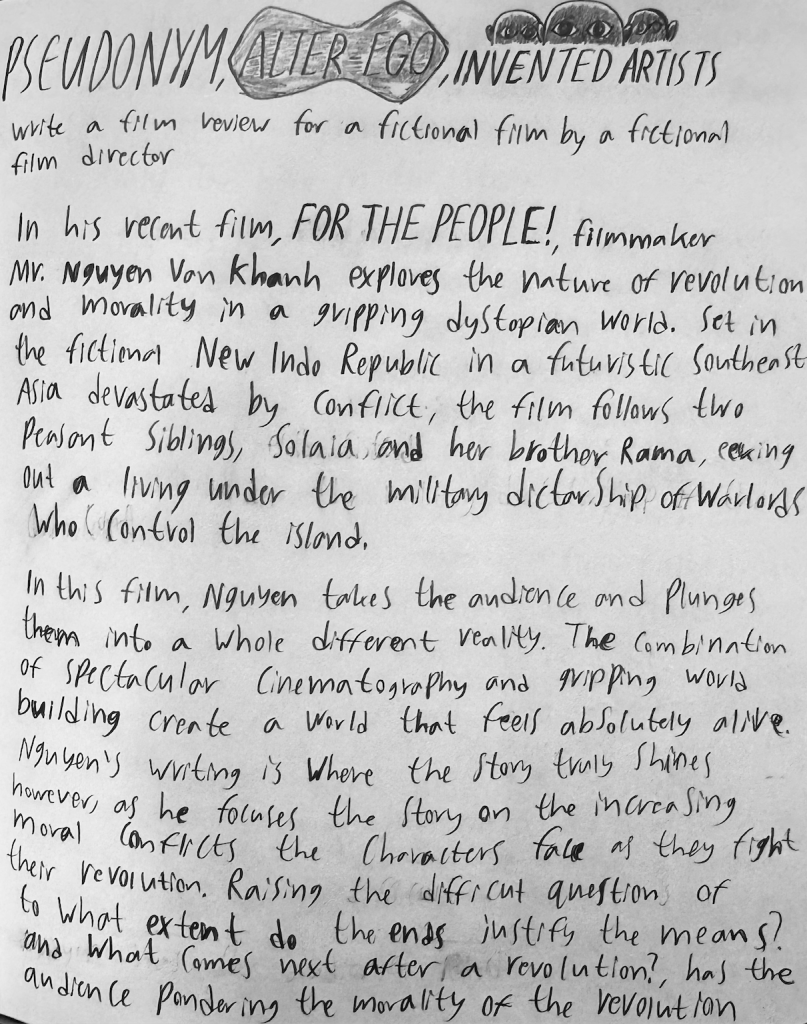 PSEUDONYM, ALTER-EGO, INVENTED ARTISTS
write a film review for a fictional film by a fictional
film director
In his recent film, FOR THE PEOPLE!, filmmaker
Mr. Nguyen Van Khanh explores the nature of revolution
and morality in a gripping dystopian world. Set in
the fictional New Indo Republic in a futuristic Southeast
Asia devastated by conflict, the film follows two
Peasant Siblings, Solaia, and her brother Rama, eeking
out a living under the military dictatorship of Warlords
who control the island.
In this film, Nguyen takes the audience and Plunges
them into a whole different reality. The combination
of spectacular cinematography and gripping world
building create a world that feels absolutely alive.
Nguyen's writing is where the story truly shines
however, as he focuses the story on the increasing
moral conflicts the characters face as they fight
their revolution. Raising the difficut question of
to what extent do the ends justify the means?
and what comes next after a revolution?, has the
audience pondering the morality of the revolution